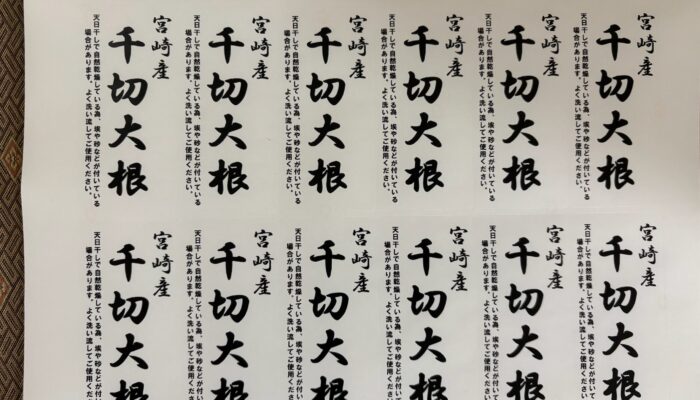 宮崎産
千切大根
天日干しで自然乾燥している為、埃や砂などが付いている
場合があります。よく洗い流してご使用ください。
宮崎産
千切大根
天日干しで自然乾燥している為、埃や砂などが付いている
場合があります。よく洗い流してご使用ください。
宮崎産
千切大根
天日干しで自然乾燥している為、埃や砂などが付いている
場合があります。よく洗い流してご使用ください。
宮崎産
千切大根
天日干しで自然乾燥している為、埃や砂などが付いている
場合があります。よく洗い流してご使用ください。
宮崎産
千切大根
天日干しで自然乾燥している為、埃や砂などが付いている
場合があります。よく洗い流してご使用ください。
宮崎産
千切大根
天日干しで自然乾燥している為、埃や砂などが付いている
場合があります。よく洗い流してご使用ください。
宮崎産
千切大根
天日干しで自然乾燥している為、埃や砂などが付いて
場合があります。よく洗い流してご使用くださ
宮崎産
千切大根
天日干しで自然乾燥している為、埃や砂などが付いて
場合があります。よく洗い流してご使用くださ
宮崎産
千切大根
天日干しで自然乾燥している為、埃や砂などが付いて
場合があります。よく洗い流してご使用くださ
宮崎産
千切大根
天日干しで自然乾燥している為、埃や砂などが付いて
場合があります。よく洗い流してご使用くださ
宮崎産
千切大根
天日干しで自然乾燥している為、埃や砂などが付いて
場合があります。よく洗い流してご使用くださ
宮崎産
千切大根
天日干しで自然乾燥している為、埃や砂などが付いて
場合があります。よく洗い流してご使用くださ